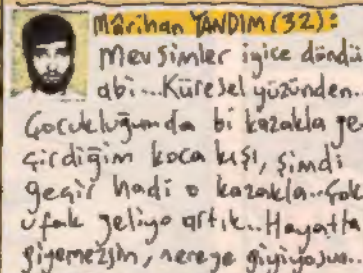 Mârihan YANDIM (32):
Mevsimler iyice döndü
abi...Küresel yüzünden..
Çocukluğumda bi kazakla ge-
çirdiğim koca kışı, şimdi
geçir hadi o kazakla..Çok
ufak geliyo artık..Hayatta
giyemezsin, nereye giyiyosun..